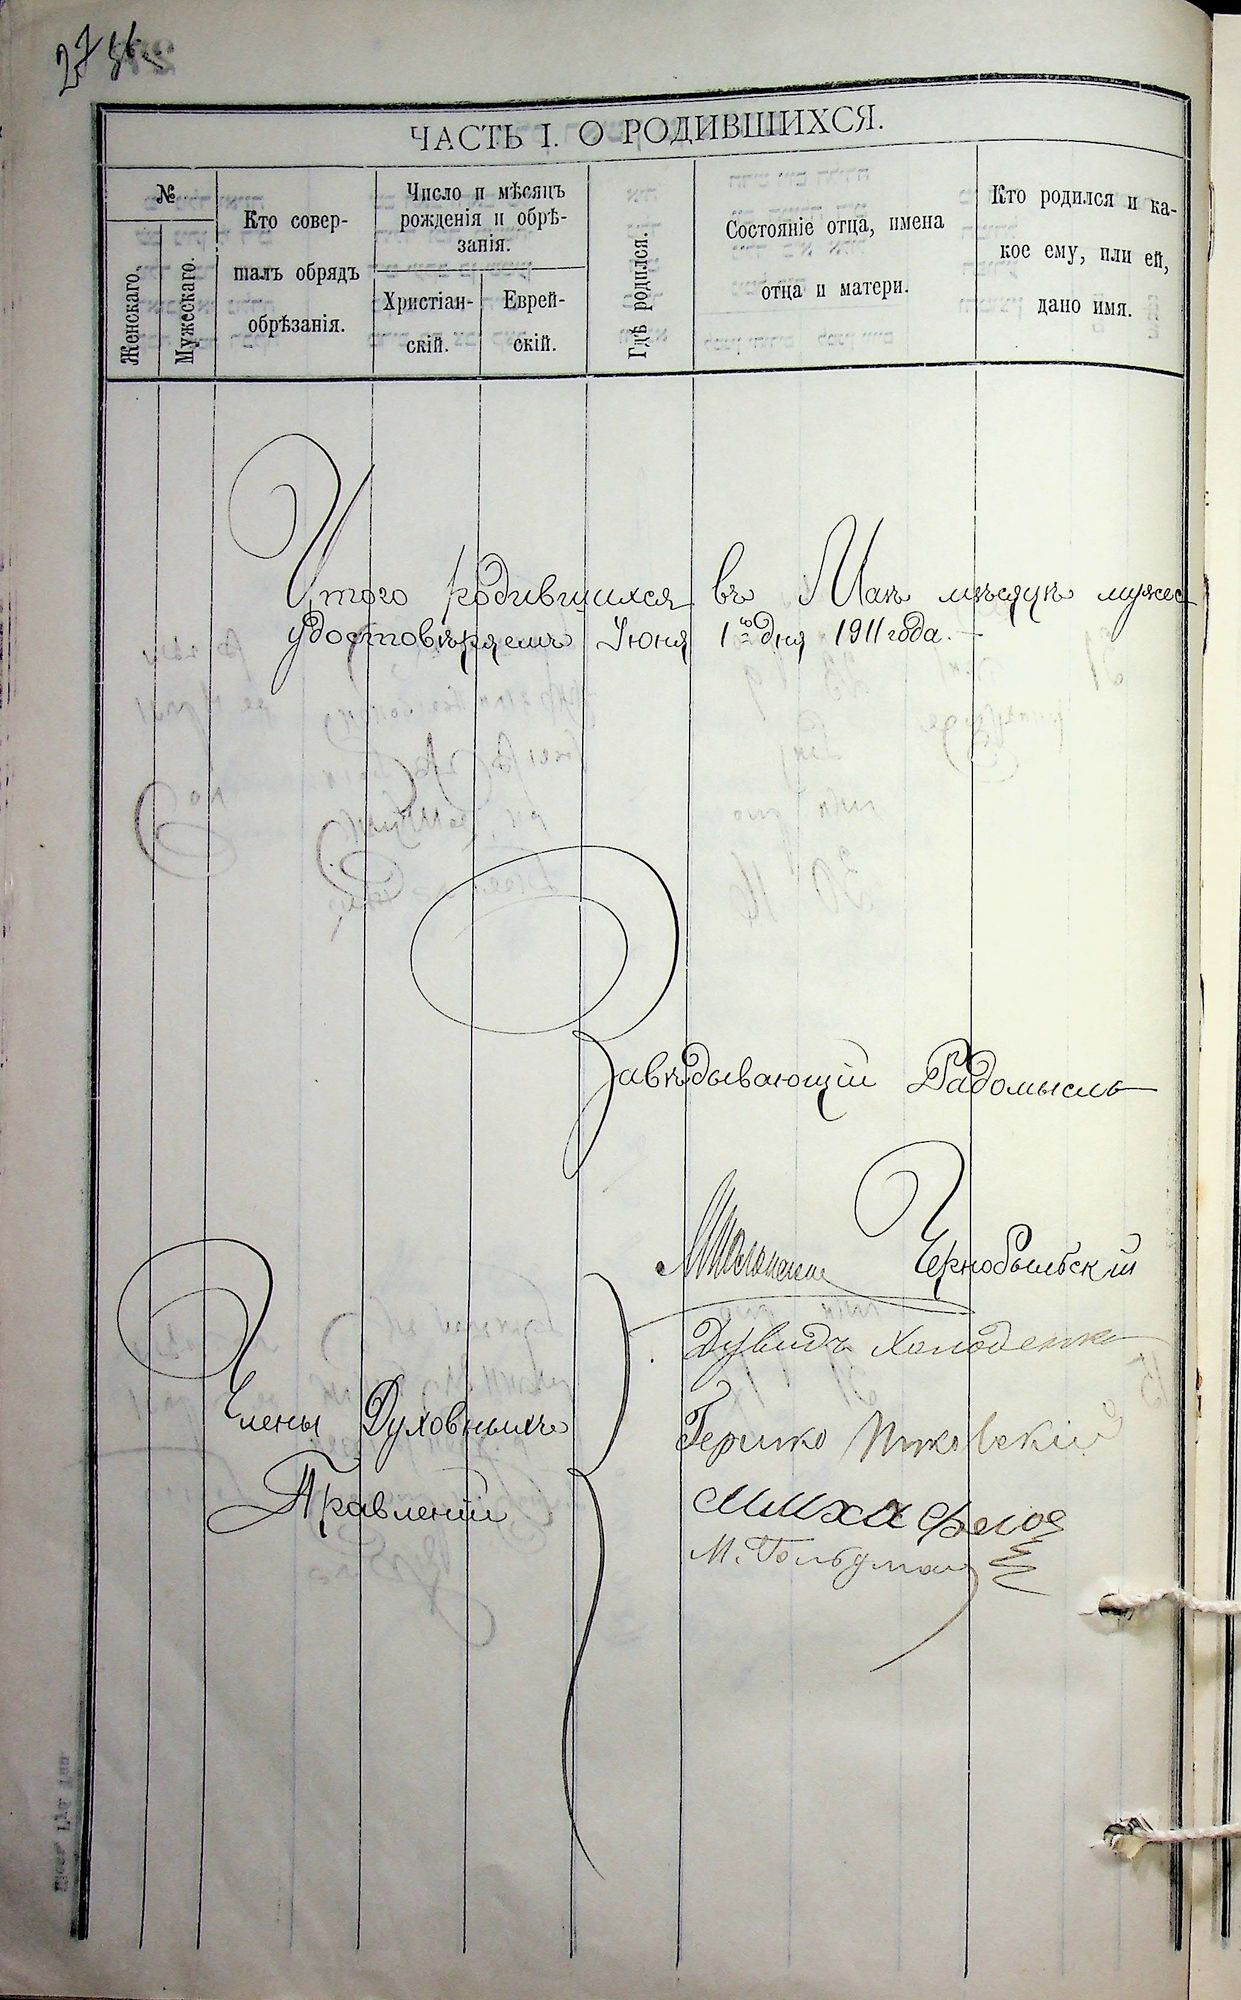 ЧАСТЬ I. О РОДИВШИХСЯ.
№
Женскаго.
Мужескаго.
Кто совер-
шалъ обрядъ
обрѣзанія.
Число и мѣсяцъ
рожденія и обрѣ-
занія.
Христіан-
скій.
Еврей-
скій.
Гдѣ родился.
Состояніе отца, имена
отца и матери.
Кто родился и ка-
кое ему, или ей,
дано имя.
Итого родившихся въ Маѣ мѣсяцѣ мужес
удостовѣряемъ Іюня 1го дня 1911 года.
Завѣдывающій Радомысль
Чернобыльскій
Члены Духовныхъ
Правленій
Дувидъ Холоденко
Гершко
М.